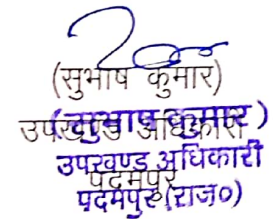 (सुभाष कुमार)
(सुभाष कुमार)
उपखण्ड अधिकारी
उपखण्ड अधिकारी
पदमपुर
पदमपुर (राज०)